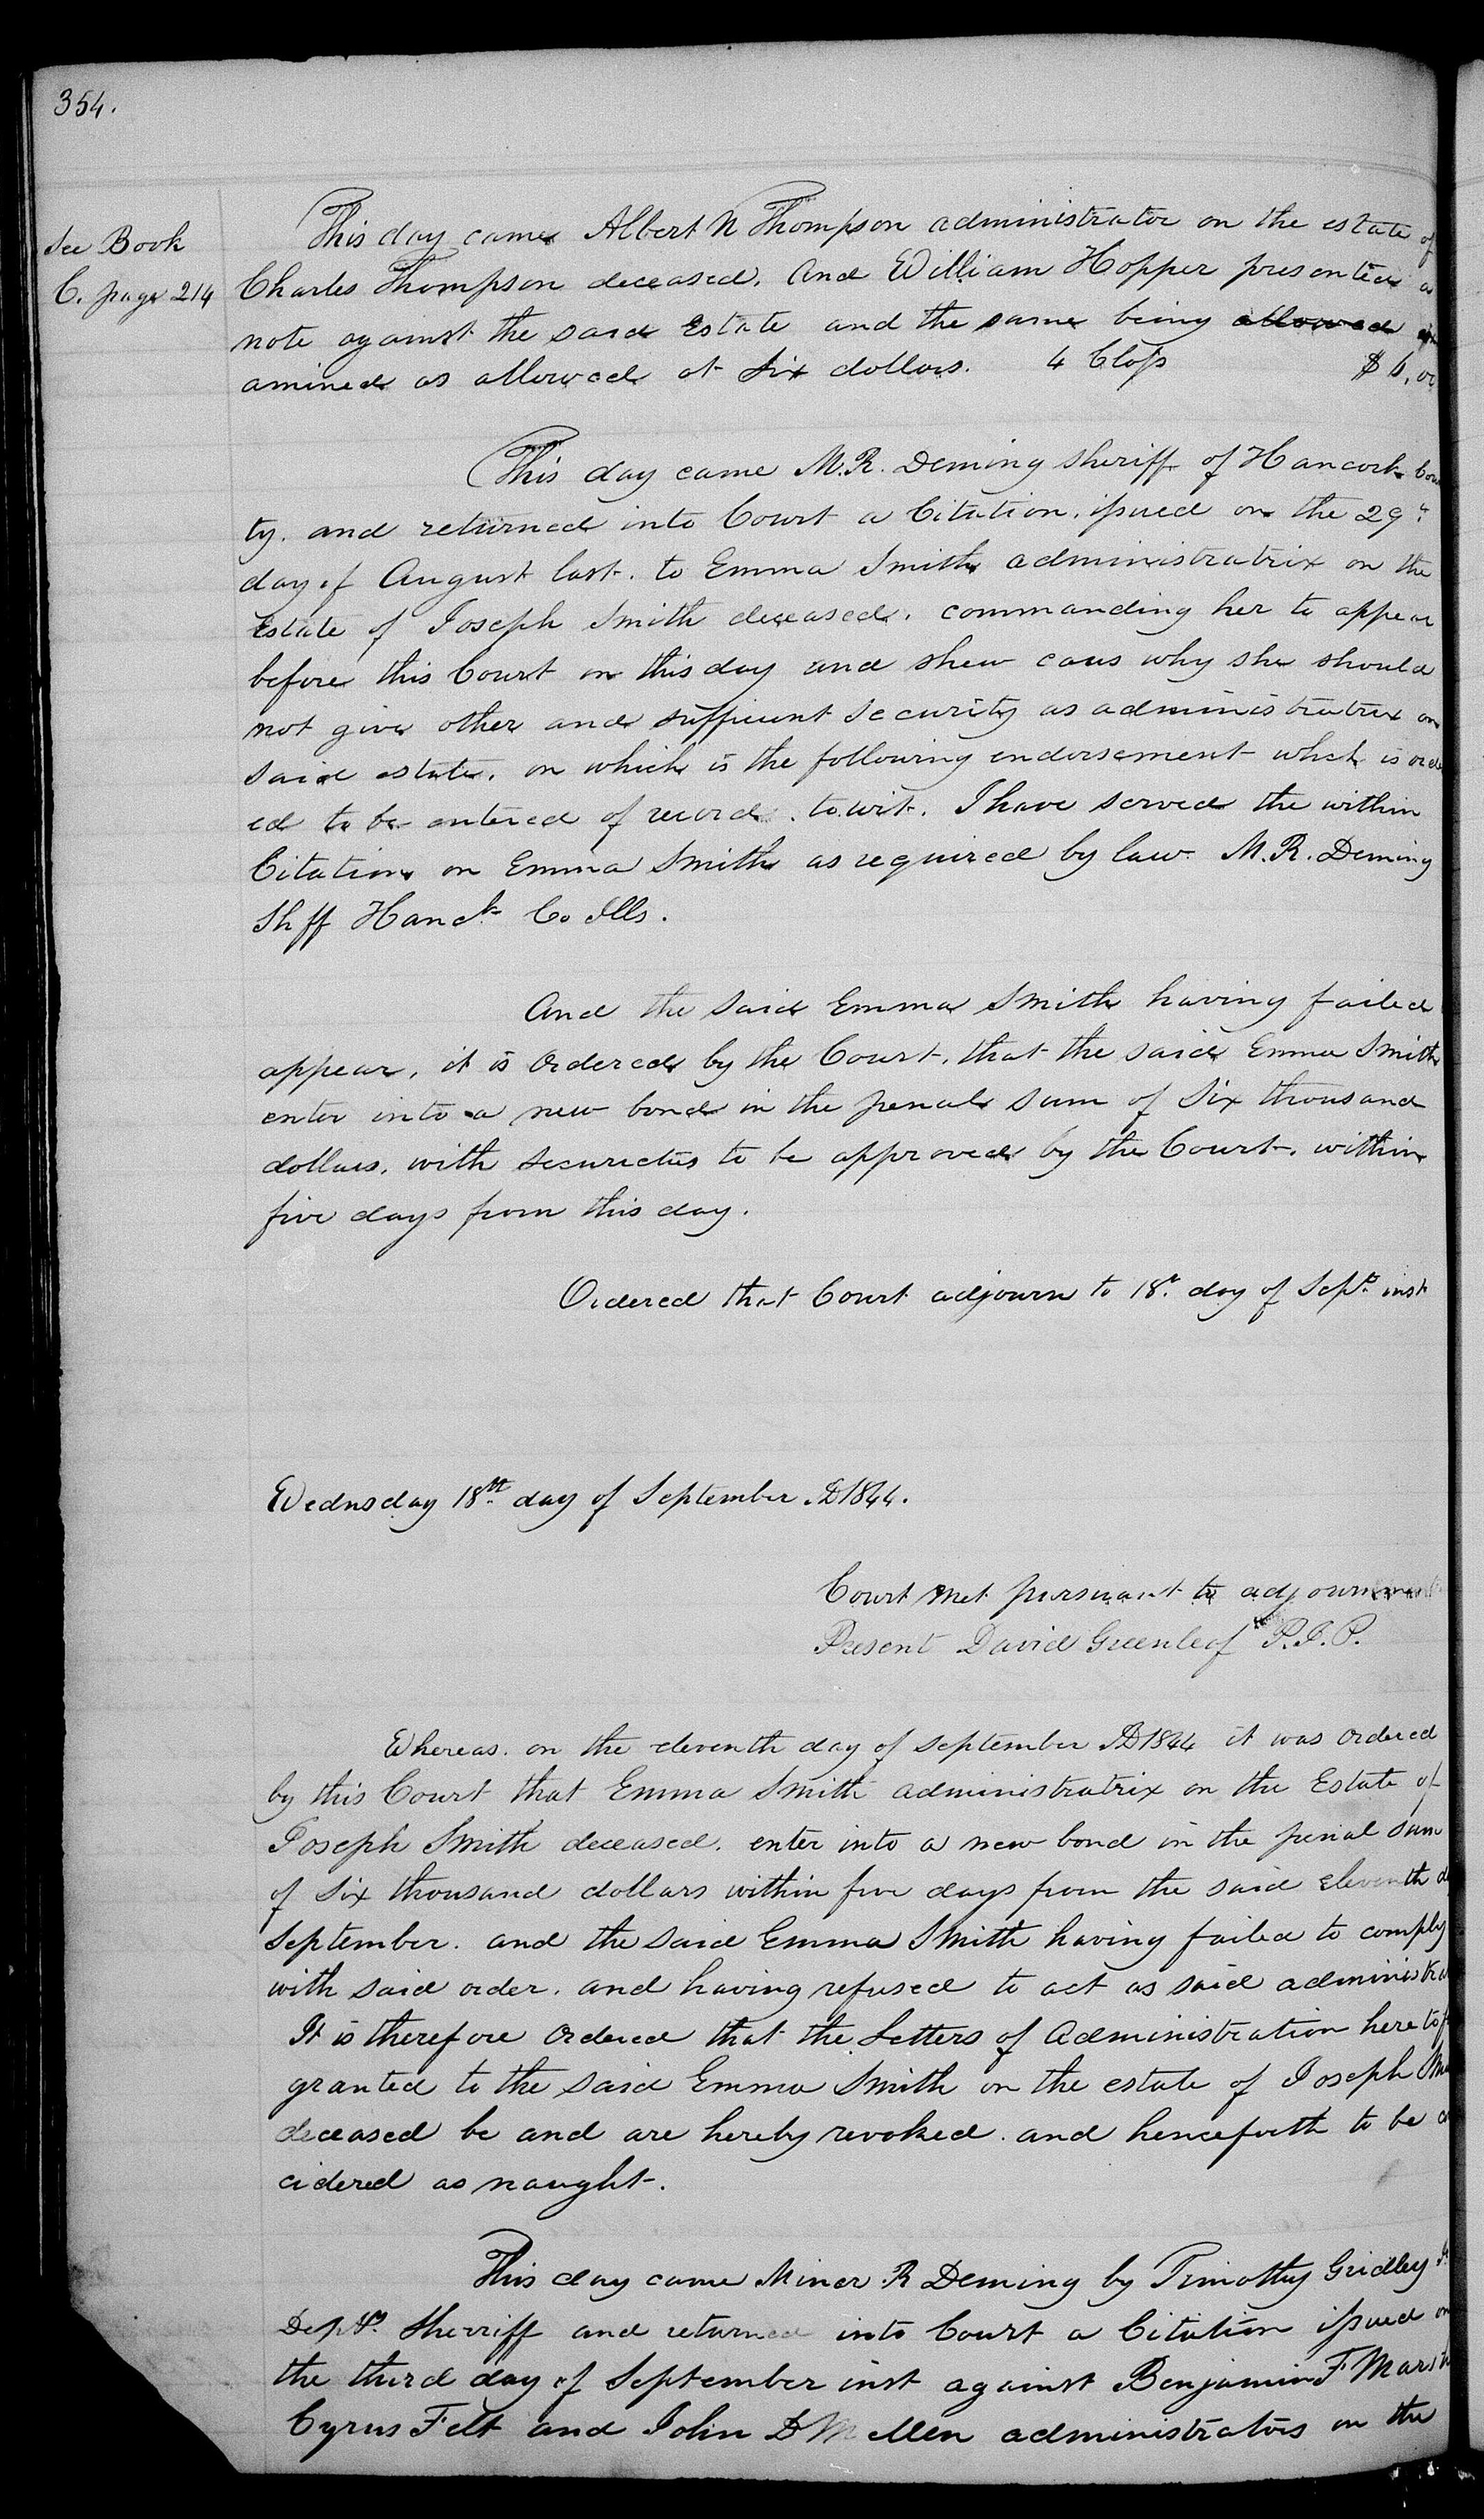 354.
See Book
C. page 214
This day came Albert N Thompson administrator on the estate of
Charles Thompson deceased. And William Hopper presented a
note against the said Estate and the same being allowed ex
amined as allowed at Six dollars. 4 Class $6.00
This day came M.R. Deming Sheriff of Hancock Coun
ty. and returned into Court a Citation. issued on the 29th
day of August last. to Emma Smith administratrix on the
Estate of Joseph Smith deceased. commanding her to appear
before this Court on this day and shew caus why she should
not give other and sufficient security as administratrix on
said estate. on which is the following endorsement which is order
ed to be entered of record. towit. I have served the within
Citation on Emma Smith as required by law. M.R. Deming
Shff Hanck Co Ills.
And the said Emma Smith having failed
appear, it is Ordered by the Court, that the said Emma Smith
enter into a new bond in the penal sum of Six thousand
dollars. with securietus to be approved by the Court. within
five days from this day.
Ordered that Court adjourn to 18t day of Sept inst
Wednsday 18th day of September AD1844.
Court met pursuant to adjournment
Present David Greenleaf P.J.P.
Whereas. on the eleventh day of September AD1844 it was Ordered
by this Court that Emma Smith administratrix on the Estate of
Joseph Smith deceased. enter into a new bond in the penal sum
of Six thousand dollars within five days from the said eleventh d
September. and the said Emma Smith having failed to comply
with said order. and having refused to act as said administra
It is therefore Ordered that the Letters of Administration heretof
granted to the said Emma Smith on the estate of Joseph Sm
deceased be and are hereby revoked. and henceforth to be co
cidered as naught.
This day came Miner R Deming by Timothy Gridley
Depty. Sherriff and returned into Court a Citation issued on
the third day of September inst against Benjamin F Marsh
Cyrus Felt and John D Mellen administrators on the